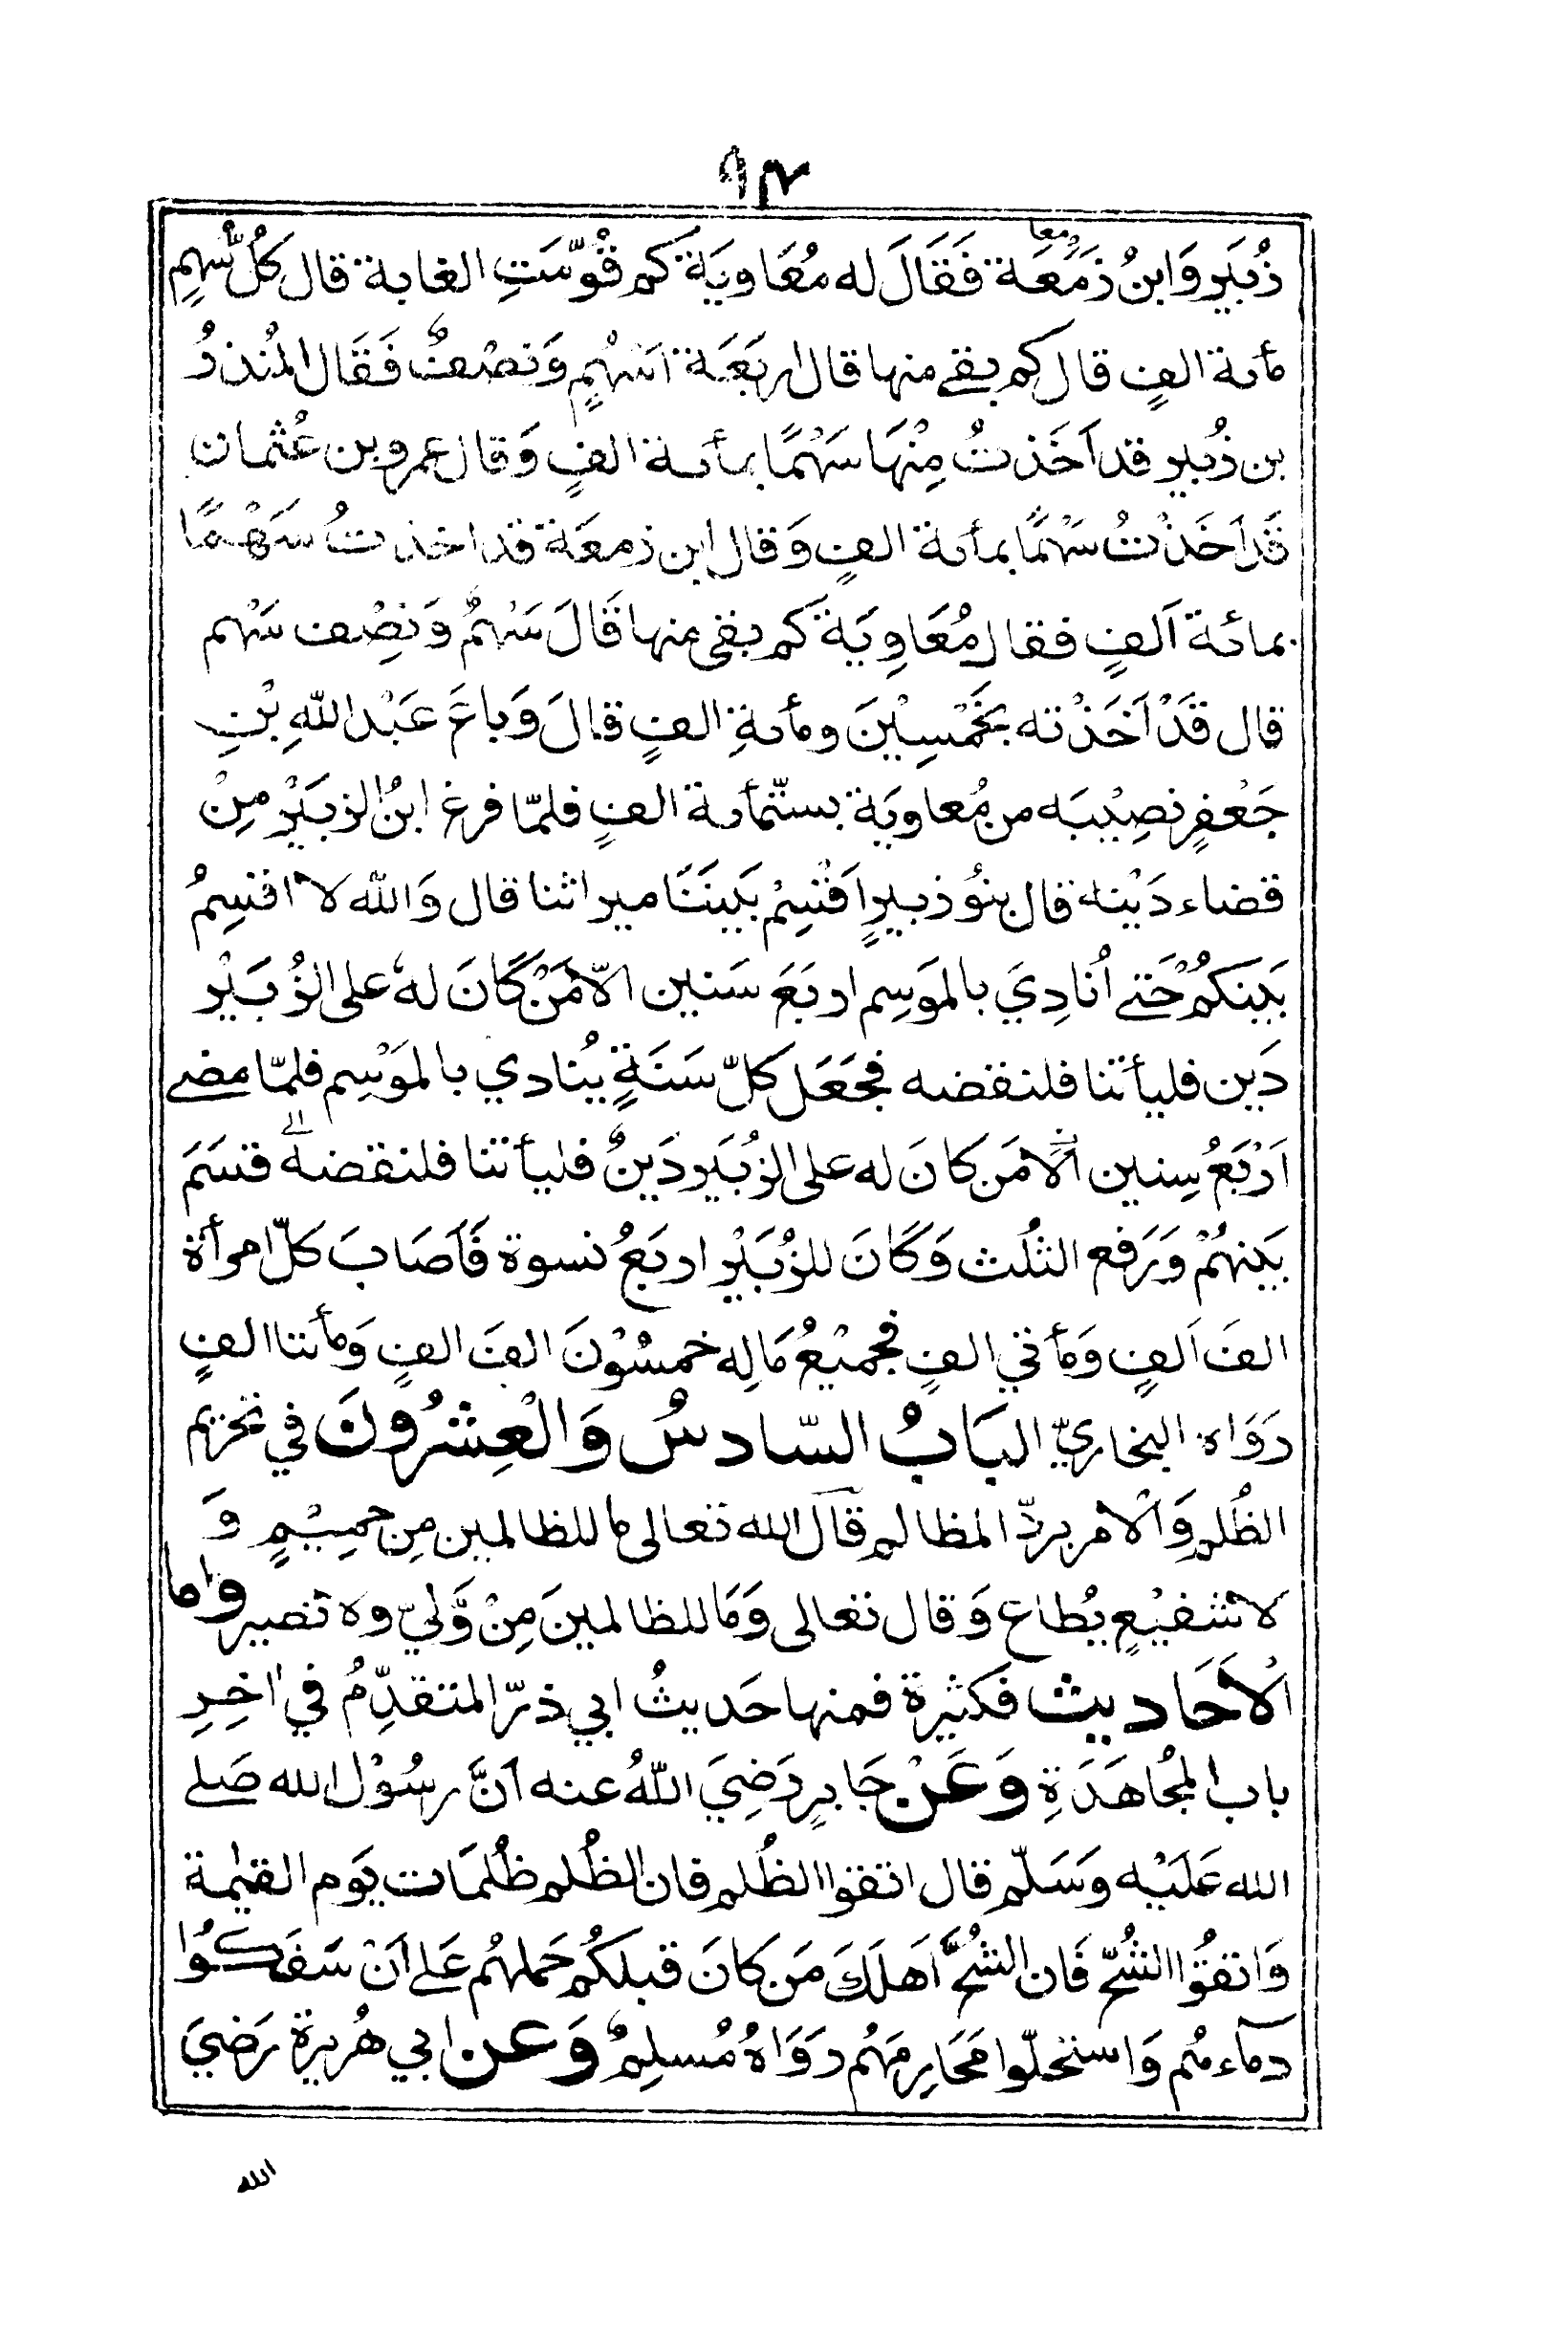 ٩٤
زُبَيرٍ وَابنُ زَمَعَة فَقَالَ له مُعَاويَة كم قُوّمَتِ الغابة قال كُلُّ سَهمٍ
معا
مأئة الفٍ قال كم بقى منها قال اربَعَة اَسْهُمٍ وَنصْفٌ فَقَال المُنذرُ
بن زُبير قد اَخَذتُ مِنْهَا سَهْمًا بمأئة الفٍ وَقال عمرو بن عُثمان
قَد اَخَذْتُ سَهْمًا بمأئة الفٍ وَقال ابن زمعَة قد اخذتُ سَهْمًا
بمائة اَلفٍ فقال مُعَاوِيَة كم بقى منها قَالَ سَهْمٌ وَنِصْف سَهْم
قال قَدْ اَخَذْته بخَمْسِيْنَ ومأئةِ الفٍ قالَ وَبَاعَ عَبْدُ اللّٰهِ بْنِ
جَعْفرٍ نصِيْبَه من مُعاويَة بستّمأئة الفٍ فلمّا فرغ ابنُ الزبَيْرِ مِنْ
قضاء دَيْنه قال بنُو زبيرٍ اَقْسِمْ بَينَنَا ميراثنا قال وَاللّٰه لا اقسِمُ
بَينَكُمْ حَتى اُنادِيَ بالمَوَسِم اربَعَ سَنين الّا مَنْ كَانَ لهٗ على الزُبَيْرِ
دَين فليأتنا فلنقضه فجَعَل كلّ سَنَةٍ يُنادي بالمَوْسِم فلمّا مضى
اَرْبَعُ سِنين اَلا مَن كانَ له على الزُبَير دَينٌ فليأتنا فلنقضه قسَمَ
بَينهُمْ وَرَفع الثلُث وَكَانَ للزُبَيْر اربَعُ نسوة فَاَصَابَ كلّ امرأة
الفَ اَلفٍ وَمأتي الفٍ فجميْعُ مَالِه خمسُوْنَ الفَ الفٍ وَمأتنا الفٍ
رَوَاه البخاريّ البَابُ السّادسُ وَالْعِشرُونَ في تحريم
الظُلمِ وَالْامر بردّ المظالم قَالَ الله تعالى ما للظالمين مِن حمِيْمٍ وَ
لا شفيْعٍ يُطاع وَقال تعالى وَمَا للظالمينَ مِنْ وَّليّ ولا نصير واما
الْاَحَاديث فكثيرة فمنها حَديثُ ابي ذرّ المتقدِّمُ في اٰخِرِ
باب المجُاهَدَةِ وَعَنْ جَابرٍ رَضِيَ اللّٰهُ عنه اَنَّ رسُوْل الله صَلى
الله عَلَيْه وَسَلّم قال اتقوا الظُلم فان الظُلم ظُلمَات يَوم القيٰمة
وَاتقُوا الشُحّ فَان الشُحَّ اَهلَكَ مَن كانَ قبلكُم حَملهُم عَلى اَنْ سَفَكُوْا
دماءهُم وَاستحلّوا مَحَارِمَهُم رَوَاهُ مُسلِمٌ وَعن ابي هُريرة رَضيَ
الله